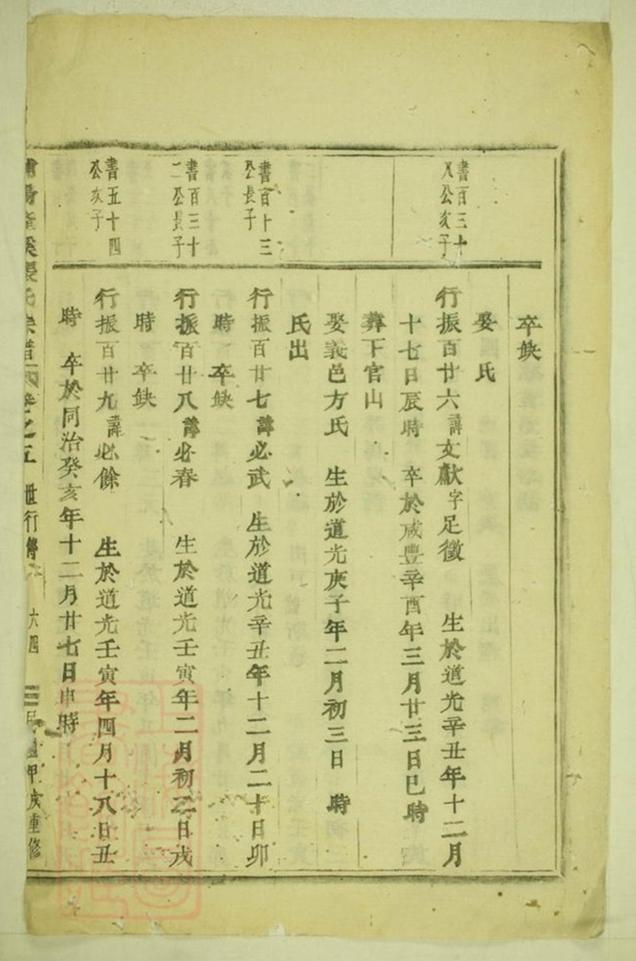 卒缺
娶 氏
書百三十
八公亥子
行振百廿六諱文獻字足徵 生於道光辛丑年十二月
十七日辰時 卒於咸豐辛酉年三月廿三日巳時
葬下官山
娶義邑方氏 生於道光庚子年二月初三日 時
氏出
書百十三
公長子
行振百廿七諱必武 生於道光辛丑年十二月二十日卯
時 卒缺
書百三十
二公長子
行振百廿八諱必春 生於道光壬寅年二月初二日戌
時 卒缺
書五十四
公亥子
行振百廿九諱必餘 生於道光壬寅年四月十八日丑
時 卒於同治癸亥年十二月廿七日申時
氏宗譜 卷之五 世行傳 六四 民國甲戌重修